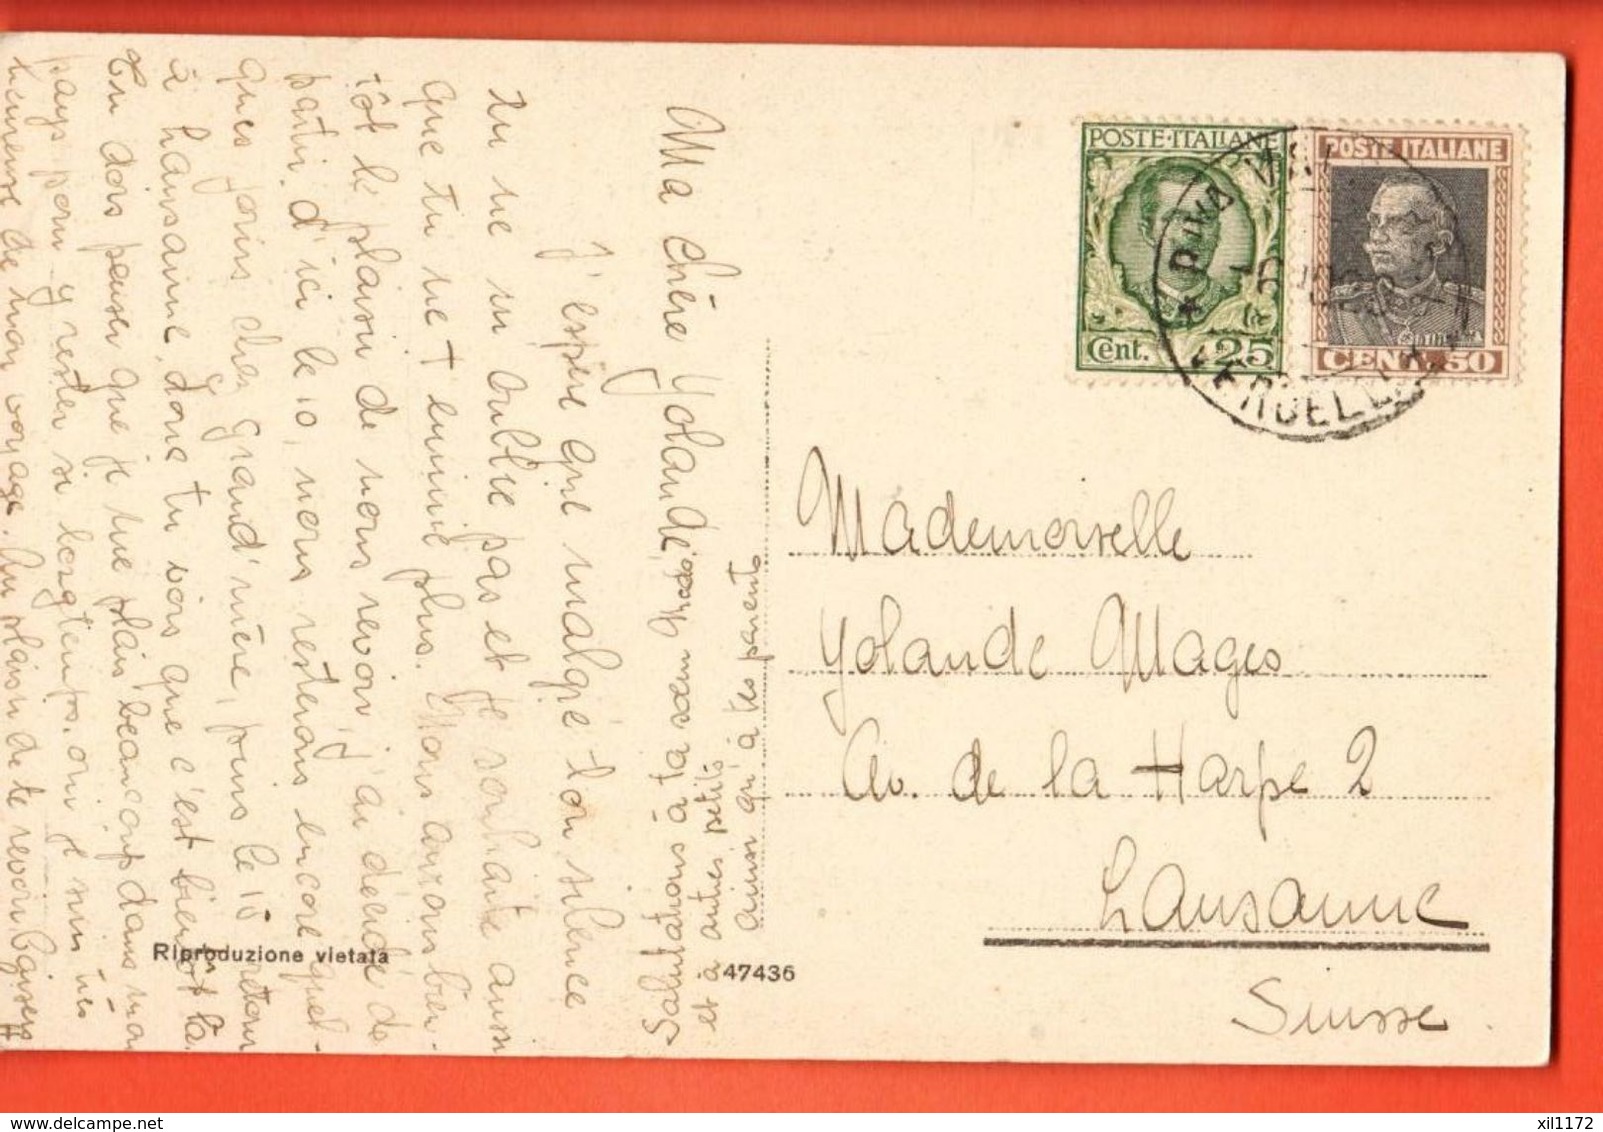 Ma chère Yolande,
J'espère que malgré ton silence
tu ne m'oublie pas et je souhaite aussi
que tu ne t'ennuie plus. Nous aurons bien-
tôt le plaisir de nous revoir, j'ai décidé de
partir d'ici le 10, nous resterons encore quel-
ques jours chez grand'mère, puis le 15 retour
à Lausanne, donc tu vois que c'est bientôt là.
Tu dois penser que je me plais beaucoup dans mon
pays pour y rester si longtemps, oui je suis très
heureuse de mon voyage. Au plaisir de te revoir. Baisers
Salutations à ta sœur
et à autres petits
ainsi qu'à tes parents
POSTE·ITALIANE
Cent. 25
POSTE ITALIANE
CENT. 50
Mademoiselle
Yolande Mages
Av. de la Harpe 2
Lausanne
Suisse
Riproduzione vietata
47436
xil1172